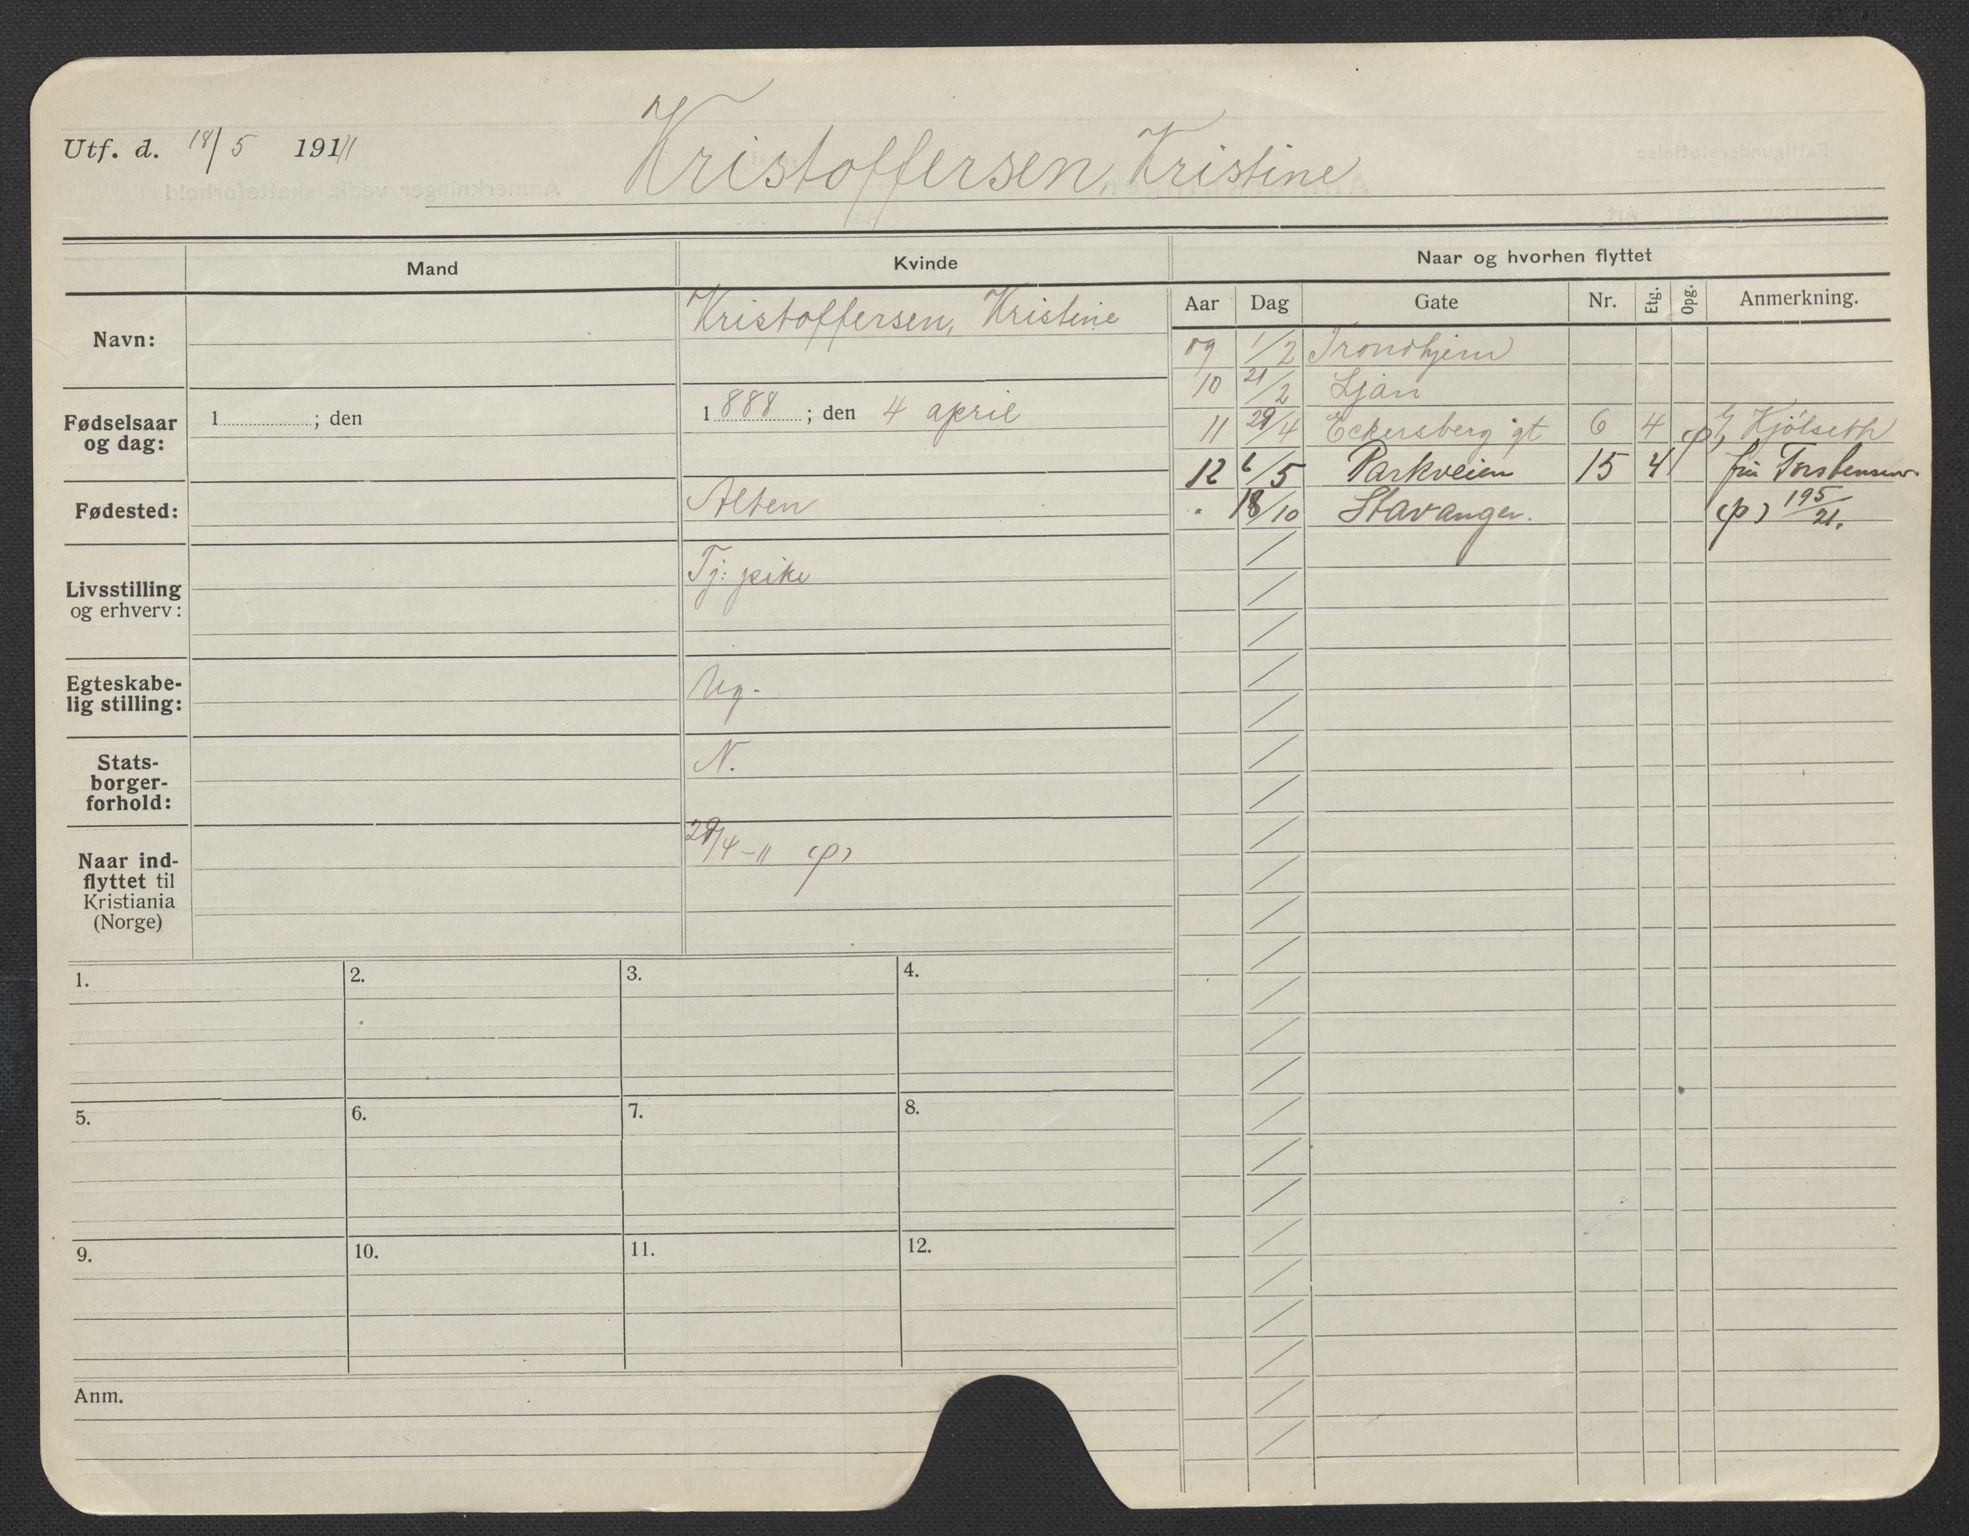 Utf. d. 18/5 1911
Kristoffersen, Kristine
Mand
Kvinde
Naar og hvorhen flyttet
Aar Dag Gate Nr. Etg. Opg. Anmerkning.
Navn:
Kristoffersen, Kristine
09 1/2 Trondhjem
10 21/2 Ljan
Fødselsaar
og dag:
1 ; den
1 888 ; den 4 april
11 29/4 Eckersberg gt 6 4 Kjölseth
12 6/5 Parkveien 15 4 fru Torstensen
" 18/10 Stavanger. (p) 195/21.
Fødested:
Alten
Livsstilling
og erhverv:
Tj: pike
Egteskabe-
lig stilling:
Ug.
Stats-
borger-
forhold:
N.
Naar ind-
flyttet til
Kristiania
(Norge)
29/4-11 (p)
1. 2. 3. 4.
5. 6. 7. 8.
9. 10. 11. 12.
Anm.